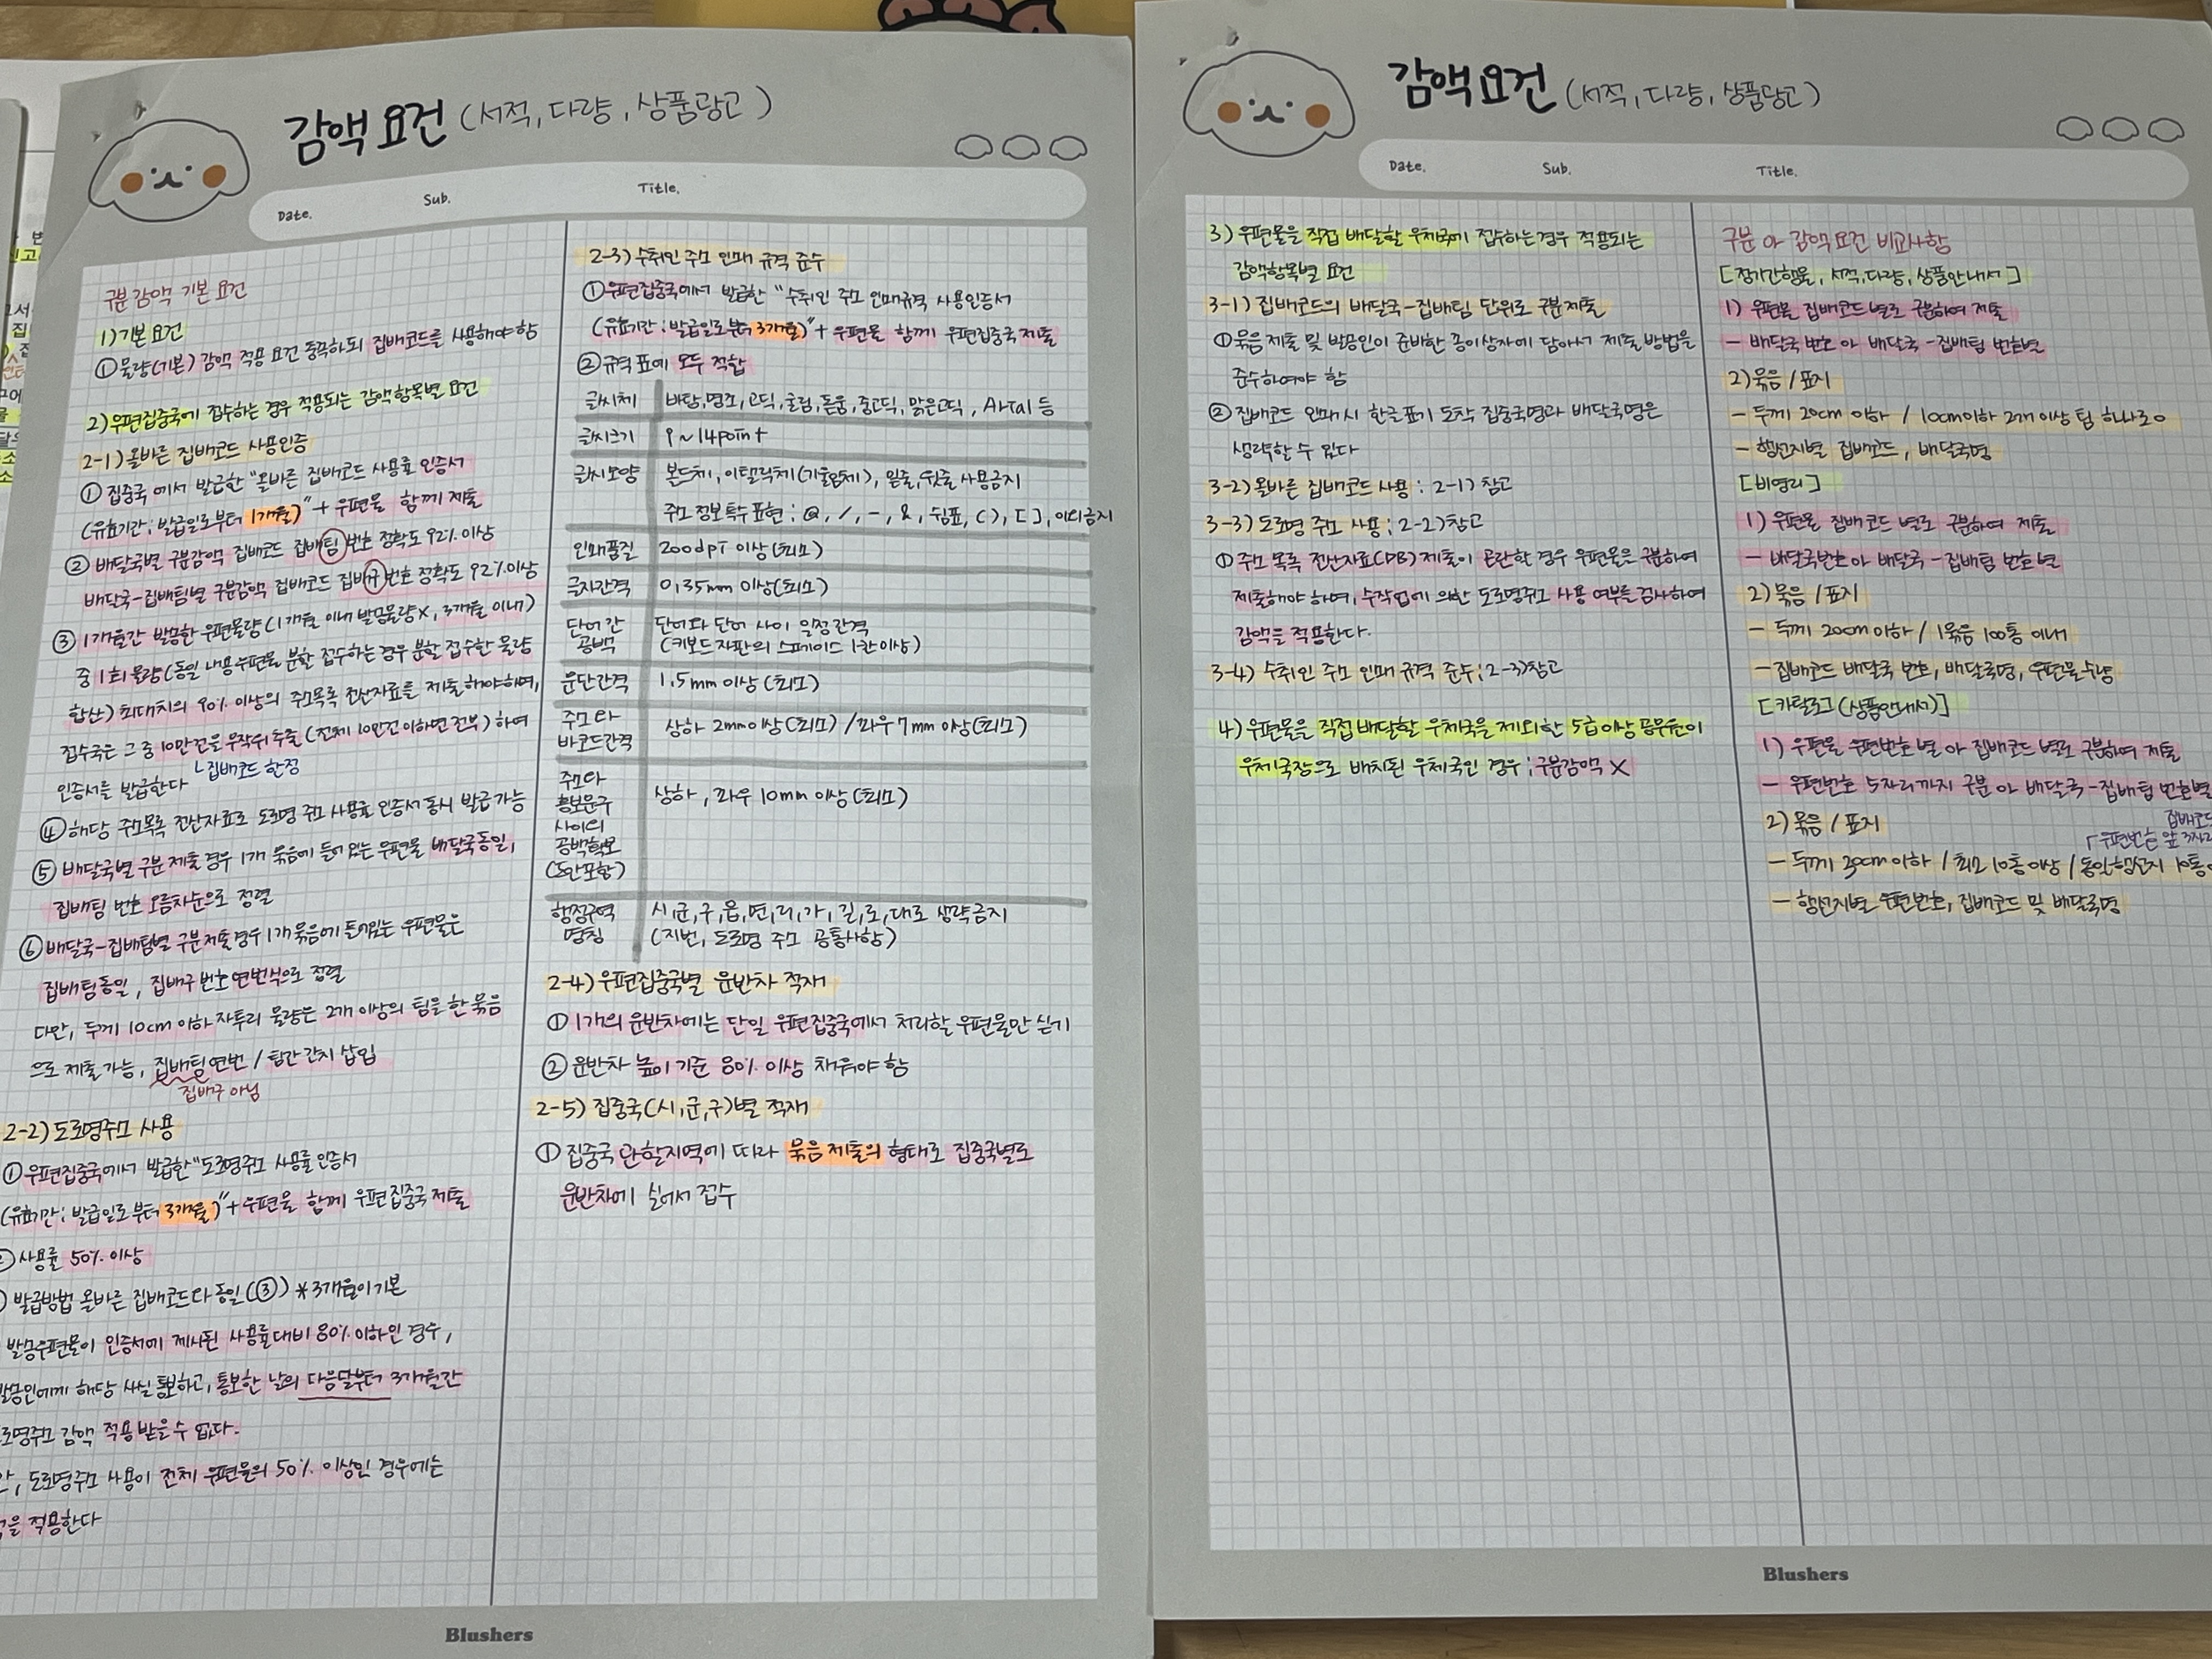 감액 요건 (서적, 다량, 상품광고)
Date.
Sub.
Title.
구분 감액 기본 요건
1) 기본 요건
① 물량(기본) 감액 적용 요건 충족하되 집배코드를 사용해야 함
2) 우편집중국에 접수하는 경우 적용되는 감액항목별 요건
2-1) 올바른 집배코드 사용인증
① 집중국에서 발급한 "올바른 집배코드 사용률 인증서
(유효기간: 발급일로부터 1개월)" + 우편물 함께 제출
② 배달국별 구분감액 집배코드 집배팀 번호 정확도 92% 이상
배달국-집배팀별 구분감액 집배코드 집배구 번호 정확도 92% 이상
③ 1개월간 발송한 우편물량(1개월 이내 발송물량X, 3개월 이내)
중 1회 물량(동일 내용 우편물 분할 접수하는 경우 분할 접수한 물량
합산) 최대치의 90% 이상의 주소목록 전산자료를 제출해야하며,
접수국은 그 중 10만건을 무작위 추출 (전체 10만건 이하면 전부) 하여
인증서를 발급한다 └집배코드 한정
④ 해당 주소목록 전산자료로 도로명 주소 사용률 인증서 동시 발급 가능
⑤ 배달국별 구분 제출 경우 1개 묶음에 들어있는 우편물 배달국동일,
집배팀 번호 오름차순으로 정렬
⑥ 배달국-집배팀별 구분제출경우 1개 묶음에 들어있는 우편물은
집배팀동일, 집배구 번호 연번식으로 정렬
다만, 두께 10cm 이하 자투리 물량은 2개 이상의 팀을 한 묶음
으로 제출가능, 집배팀 연번 / 팀간 간지 삽입
집배구 아님
2-2) 도로명주소 사용
① 우편집중국에서 발급한 "도로명주소 사용률 인증서
(유효기간: 발급일로부터 3개월)" + 우편물 함께 우편집중국 제출
사용률 50% 이상
발급방법 올바른 집배코드와 동일(③) *3개월이 기본
발송우편물이 인증서에 제시된 사용률대비 80% 이하인 경우,
발송인에게 해당 사실 통보하고, 통보한 날의 다음달부터 3개월간
로명주소 감액 적용 받을 수 없다.
, 도로명주소 사용이 전체 우편물의 50% 이상인 경우에는
을 적용한다
2-3) 수취인 주소 인쇄 규격 준수
① 우편집중국에서 발급한 "수취인 주소 인쇄규격 사용인증서
(유효기간: 발급일로부터 3개월)" + 우편물 함께 우편집중국 제출
② 규격 표에 모두 적합
글씨체 바탕, 명조, 고딕, 굴림, 돋움, 중고딕, 맑은고딕, Arial 등
글씨크기 9~14point
글씨모양 볼드체, 이탤릭체(기울임체), 밑줄, 윗줄 사용금지
주소 정보 특수 표현: @, /, -, &, 쉼표, ( ), [ ], 이외금지
인쇄품질 200dpi 이상(최소)
글자간격 0.35mm 이상(최소)
단어 간 공백 단어와 단어 사이 일정 간격
(키보드 자판의 스페이스 1칸 이상)
문단간격 1.5mm 이상 (최소)
주소와 바코드간격 상하 2mm이상(최소) / 좌우 7mm 이상(최소)
주소와 홍보문구 사이의 공백확보 (S안포함) 상하, 좌우 10mm 이상(최소)
행정구역 명칭 시, 군, 구, 읍, 면, 리, 가, 길, 로, 대로 생략금지
(지번, 도로명 주소 공통사항)
2-4) 우편집중국별 운반차 적재
① 1개의 운반차에는 단일 우편집중국에서 처리할 우편물만 싣기
② 운반차 높이 기준 80% 이상 채워야 함
2-5) 집중국(시, 군, 구)별 적재
① 집중국 관할지역에 따라 묶음 제출의 형태로 집중국별로
운반차에 실어서 접수
Blushers
감액 요건 (서적, 다량, 상품광고)
Date.
Sub.
Title.
3) 우편물을 직접 배달할 우체국에 접수하는 경우 적용되는
감액항목별 요건
3-1) 집배코드의 배달국-집배팀 단위로 구분제출
① 묶음 제출 및 발송인이 준비한 종이상자에 담아서 제출 방법을
준수하여야 함
② 집배코드 인쇄시 한글표기 도착 집중국명과 배달국명은
생략할 수 있다
3-2) 올바른 집배코드 사용: 2-1) 참고
3-3) 도로명 주소 사용: 2-2) 참고
① 주소 목록 전산자료(DB) 제출이 곤란한 경우 우편물을 구분하여
제출해야 하며, 수작업에 의한 도로명주소 사용 여부를 검사하여
감액을 적용한다.
3-4) 수취인 주소 인쇄 규격 준수: 2-3) 참고
4) 우편물을 직접 배달할 우체국을 제외한 5급 이상 공무원이
우체국장으로 배치된 우체국인 경우: 구분감액 X
구분 아 감액요건 비고사항
[정기간행물, 서적, 다량, 상품안내서]
1) 우편물 집배코드 별로 구분하여 제출
- 배달국 번호 아 배달국-집배팀 번호별
2) 묶음 / 표지
- 두께 20cm 이하 / 10cm이하 2개 이상 팀 하나로 O
- 행선지별 집배코드, 배달국명
[비영리]
1) 우편물 집배코드 별로 구분하여 제출
- 배달국번호 아 배달국-집배팀 번호별
2) 묶음 / 표지
- 두께 20cm 이하 / 1묶음 100통 이내
- 집배코드 배달국 번호, 배달국명, 우편물수량
[카탈로그 (상품안내서)]
1) 우편물 우편번호 별 아 집배코드 별로 구분하여 제출
- 우편번호 5자리까지 구분 아 배달국-집배팀 번호별
2) 묶음 / 표지
집배코드
「우편번호 앞 3자리
- 두께 30cm 이하 / 최소 10통 이상 / 동일행선지 10통
- 행선지별 우편번호, 집배코드 및 배달국명
Blushers